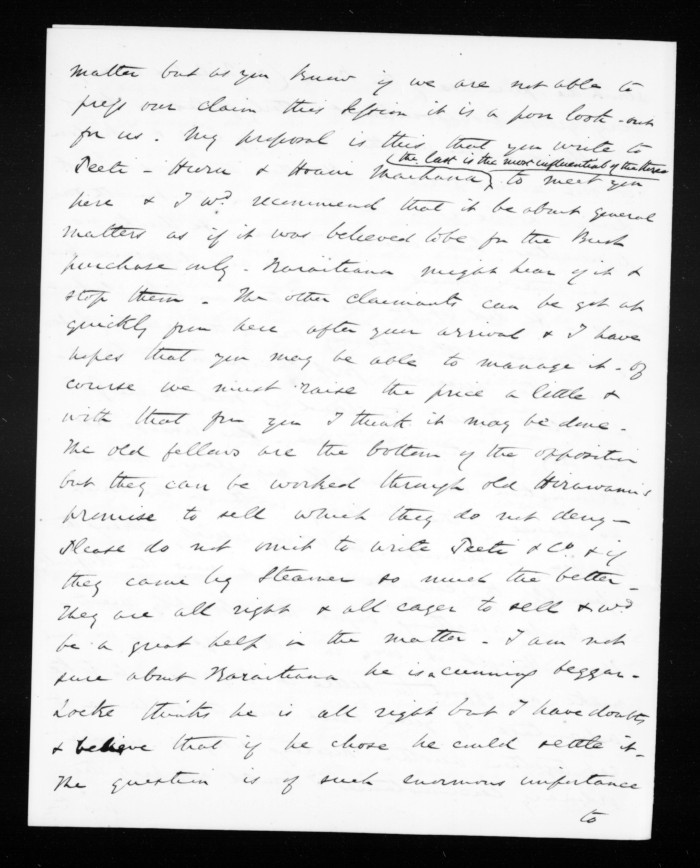 matter but as you know if we are not able to
press our claim this session it is a poor look-out
for us. My proposal is this that you write to
(the last is the most influential of the three)
Teeti - Huru & Hoani Maihana to meet you
here & I wd. recommend that it be about general
matters as if it was believed to be for the Bush
purchase only. Karaitiana might hear of it &
stop them. The other claimants can be got at
quickly from here after your arrival & I have
hopes that you may be able to manage it. Of
course we must raise the price a little &
with that from you I think it may be done.
The old fellows are the bottom of the opposition
but they can be worked through old Hirawanu's
promise to sell which they do not deny -
Please do not omit to write Teeti & Co. & if
they came by Steamer so much the better -
They are all right & all eager to sell & wd.
be a great help in the matter - I am not
sure about Karaitiana he is a cunning beggar -
Locke thinks he is all right but I have doubts
& believe that if he chose he could settle it -
The question is of such enormous importance
to